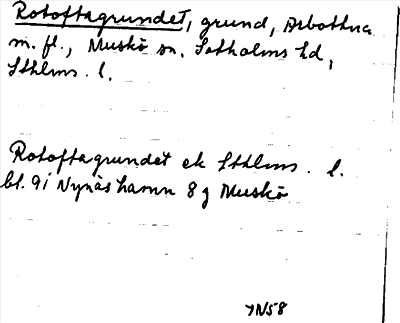 Rotoftagrundet, grund, Arbottna
m. fl., Muskö sn. Sotholms hd,
Sthlms. l.
Rotoftagrundet ek Sthlms. l.
bl. 9i Nynäshamn 8g Muskö
JN58